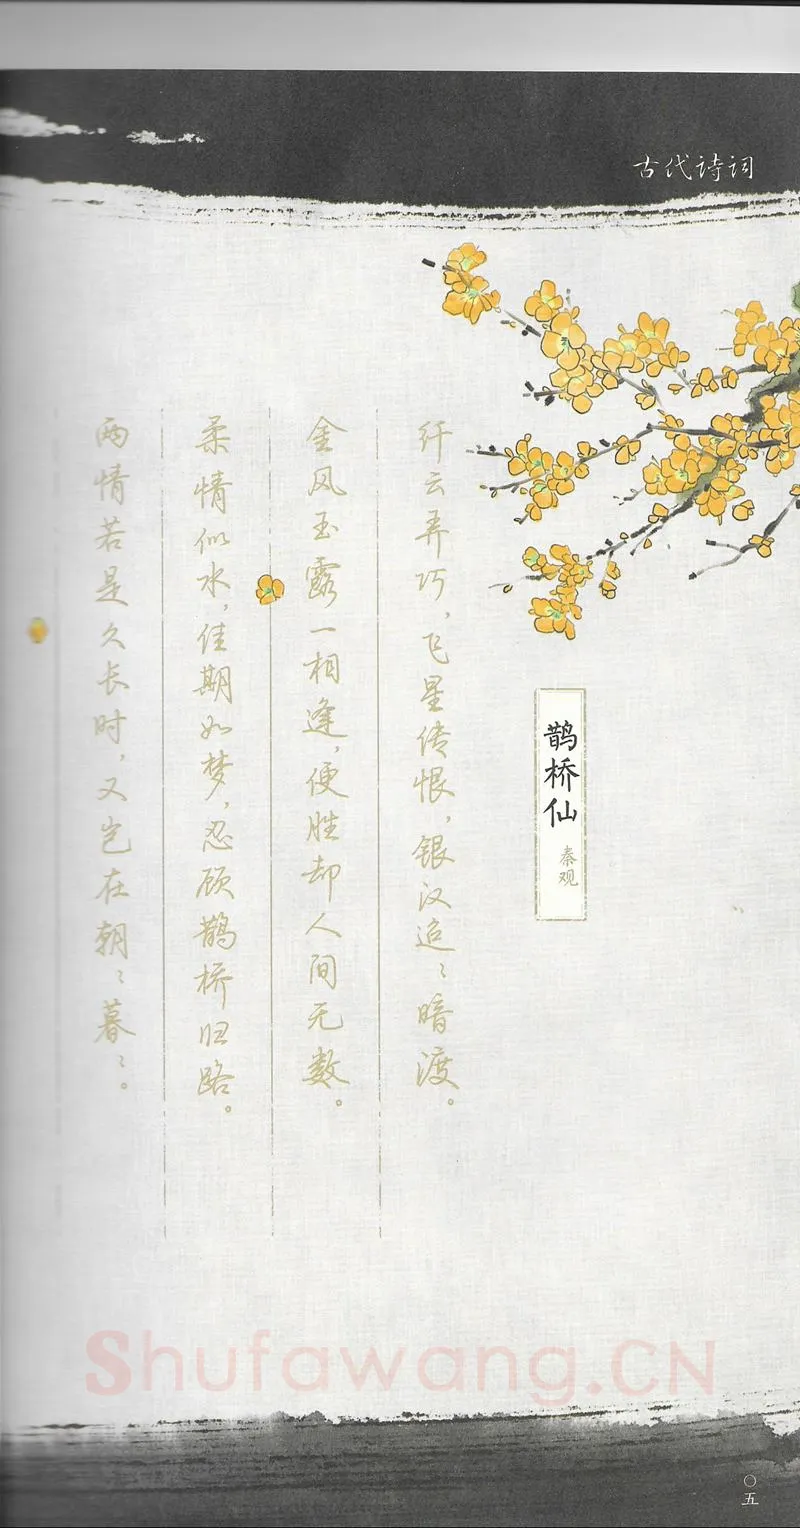 古代诗词
鹊桥仙
秦观
纤云弄巧，飞星传恨，银汉迢〻暗渡。
金风玉露一相逢，便胜却人间无数。
柔情似水，佳期如梦，忍顾鹊桥归路。
两情若是久长时，又岂在朝〻暮〻。
Shufawang.CN
〇五